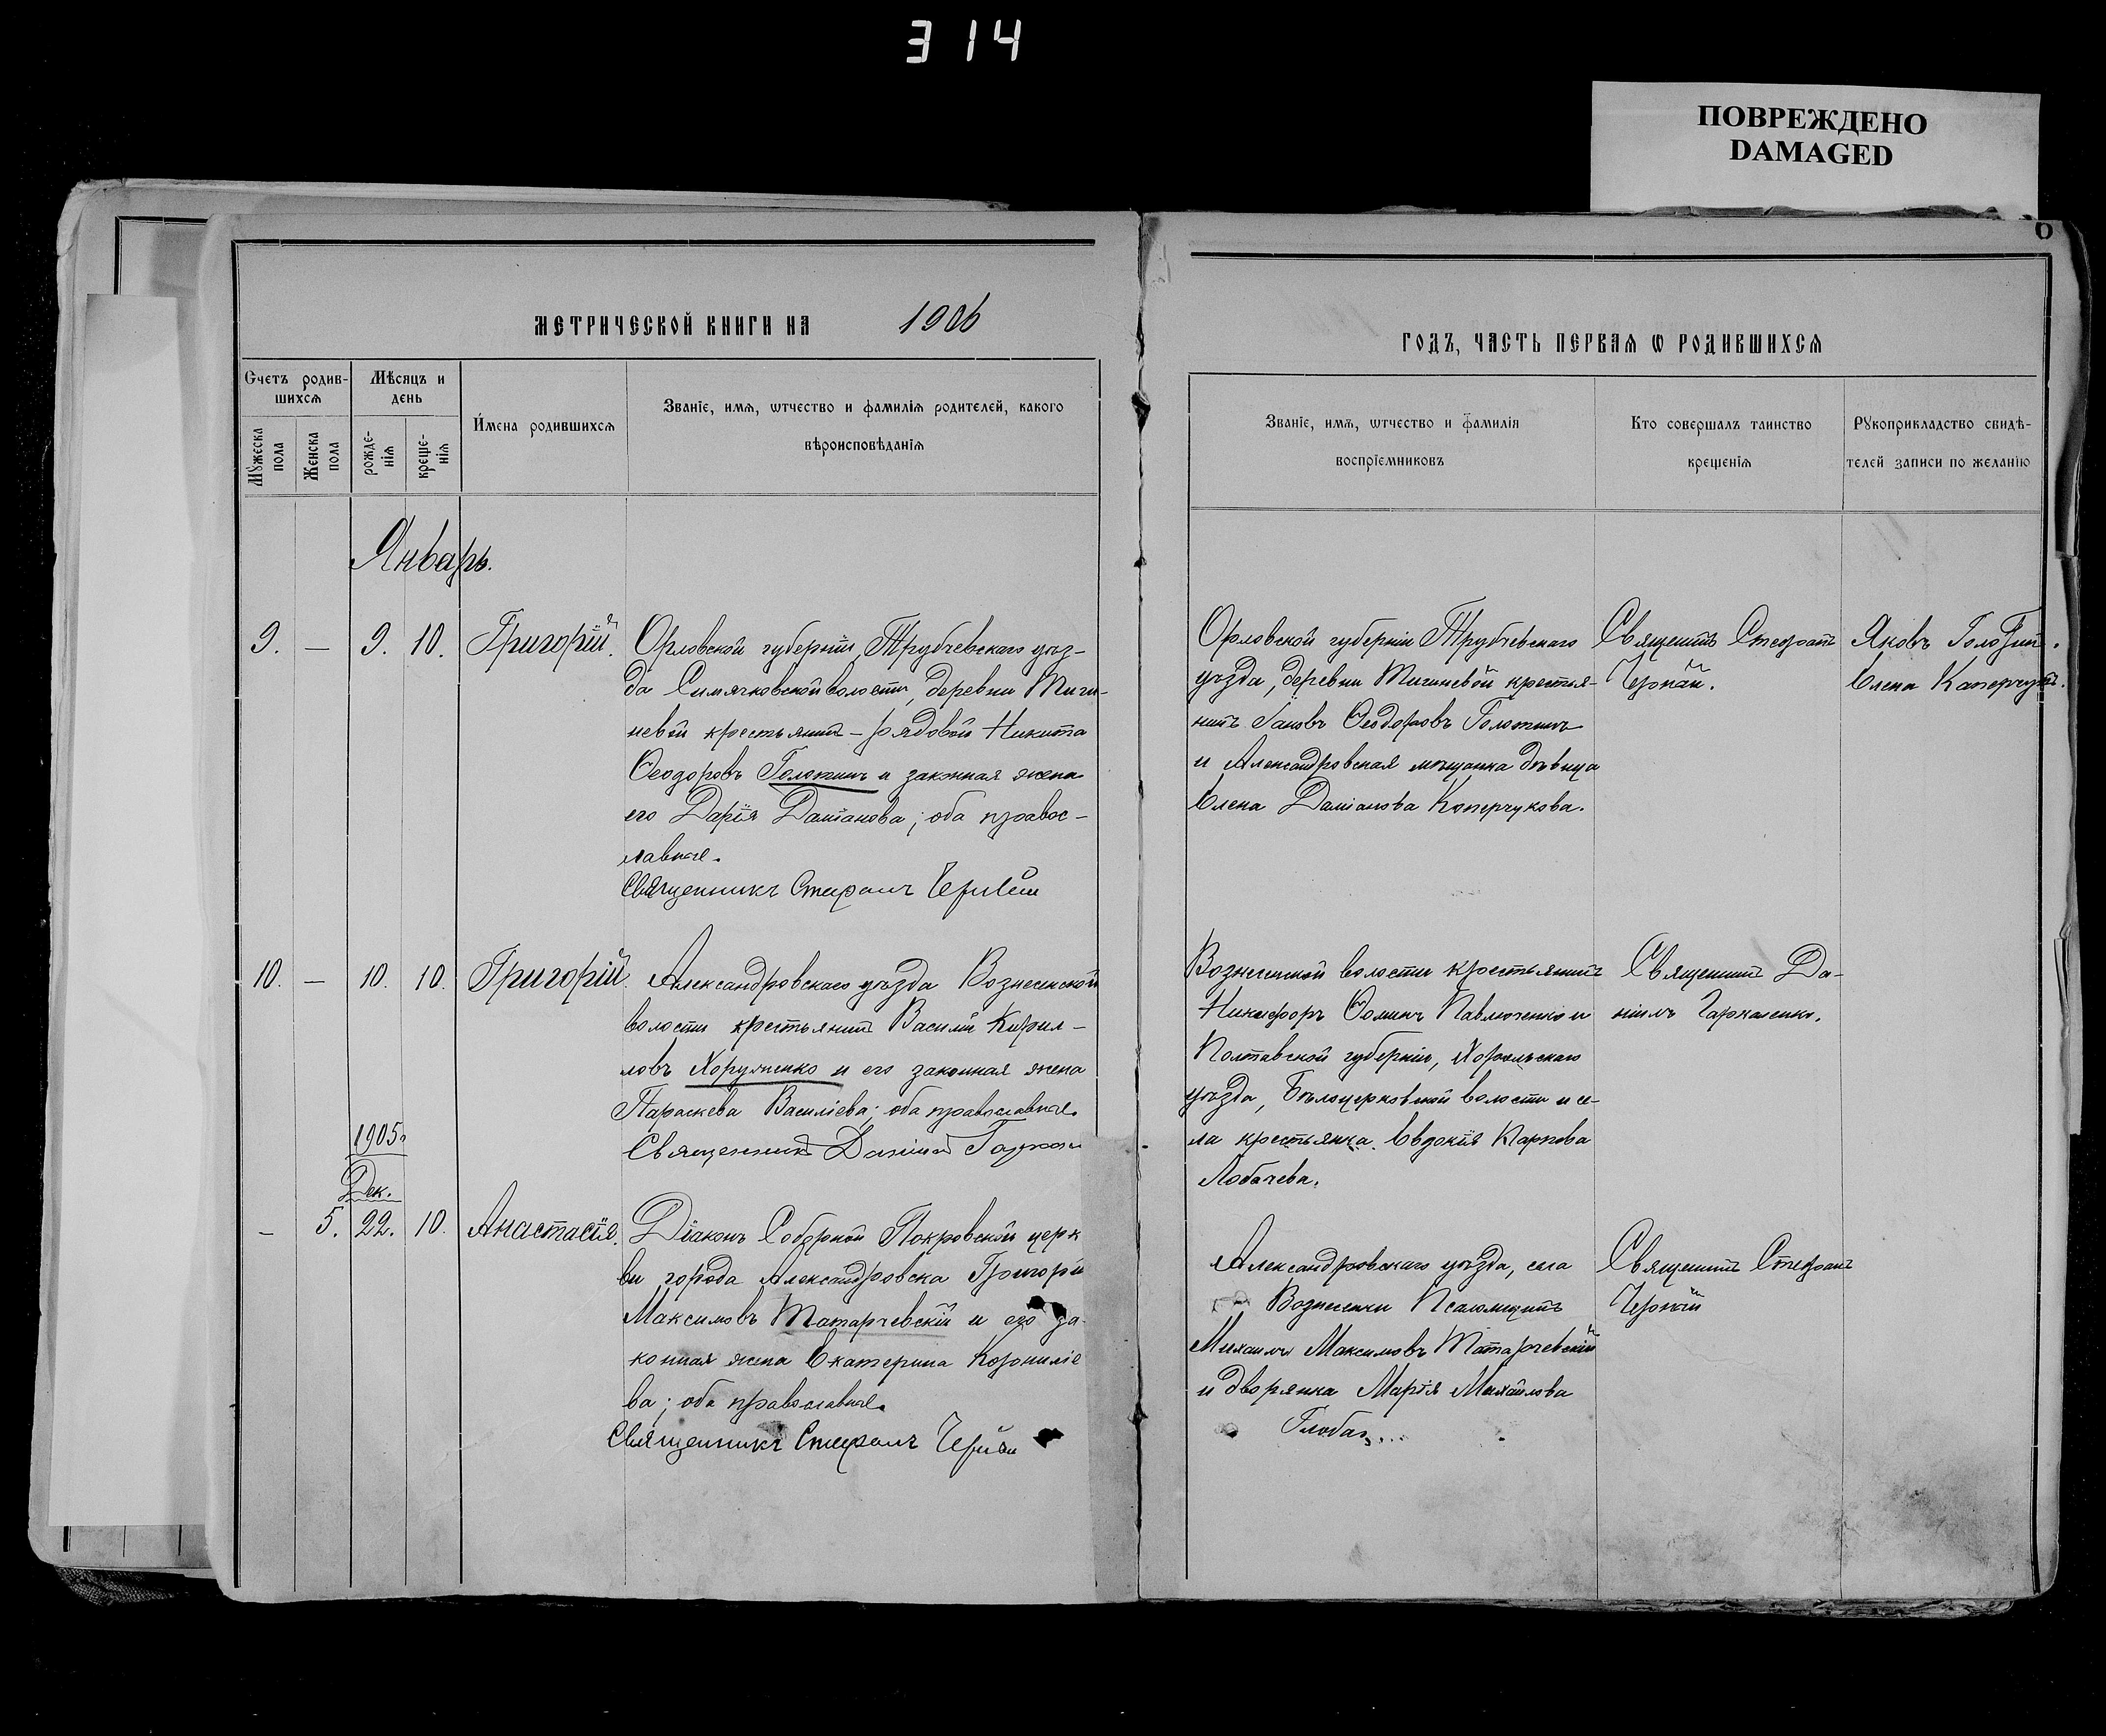 314
ПОВРЕЖДЕНО
DAMAGED
6
МЕТРИЧЕСКОЙ КНИГИ НА 1906
ГОДЪ, ЧАСТЬ ПЕРВАЯ Ѡ РОДИВШИХСЯ
Счетъ родив-
шихся
Мужеска пола
Женска пола
Мѣсяцъ и
день
рожде-
нія
креще-
нія
Имена родившихся
Званіе, имя, ѡтчество и фамилія родителей, какого
вѣроисповѣданія
Званіе, имя, ѡтчество и фамилія
воспріємниковъ
Кто совершалъ таинство
крещенія
Рукоприкладство свидѣ-
телей записи по желанію
Январь.
9. — 9. 10. Григорій.
Орловской губерніи, Трубчевскаго уѣз-
да Симячковской волости, деревни
невой крестьянинъ – рядовой Никита
Ѳеодоровъ Голотинъ и законная жена
его Дарія Даміанова; оба правос-
лавные.
Священникъ Стефанъ
Орловской губерніи Трубчевскаго
уѣзда, деревни крестья-
нинъ Іаковъ Ѳеодоровъ Голотинъ
и Александровская мѣщанка дѣвица
Елена Даміанова Каперчукова.
Священникъ Стефанъ
Чернай.
Яковъ
Елена
10. — 10. 10. Григорій.
Александровскаго уѣзда Вознесенской
волости крестьянинъ Василій Кирил-
ловъ Хоруженко и его законная жена
Параскева Василіева; оба православные.
Священникъ Даніилъ
Вознесенской волости крестьянинъ
Никифоръ Ѳоминъ Павлюченко и
Полтавской губерніи, Хорольскаго
уѣзда, Бѣлоцерковской волости и се-
ла крестьянка Евдокія Карпова
Лобачева.
Священникъ Да-
ніилъ
1905
Дек.
— 5. 22. 10. Анастасія.
Діаконъ Соборной Покровской церк
ви города Александровска Григорій
Максимовъ Татарчевскій и его за-
конная жена Екатерина Корниліе
ва; оба православные.
Священникъ Стефанъ
Александровскаго уѣзда, села
Вознесенки Псаломщикъ
Михаилъ Максимовъ Татарчевскій
и дворянка Марія Михайлова
Глоба
Священникъ Стефанъ